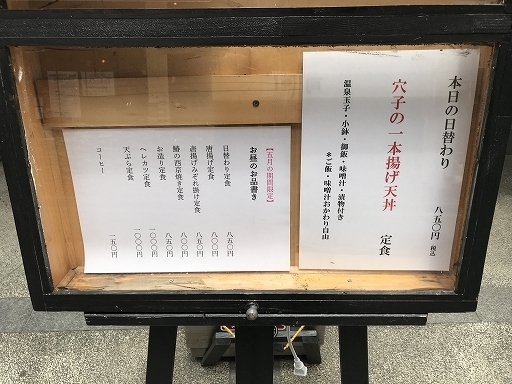 本日の日替わり 八五〇円 税込
穴子の一本揚げ天丼 定食
温泉玉子・小鉢・御飯・味噌汁・漬物付き
*ご飯・味噌汁おかわり自由
【五月の期間限定】
お昼のお品書き
日替わり定食 八五〇円
唐揚げ定食 八〇〇円
唐揚げみぞれ掛け定食 八五〇円
鰆の西京焼き定食 八五〇円
お造り定食 一〇〇〇円
ヘレカツ定食 一〇〇〇円
天ぷら定食
コーヒー 一五〇円